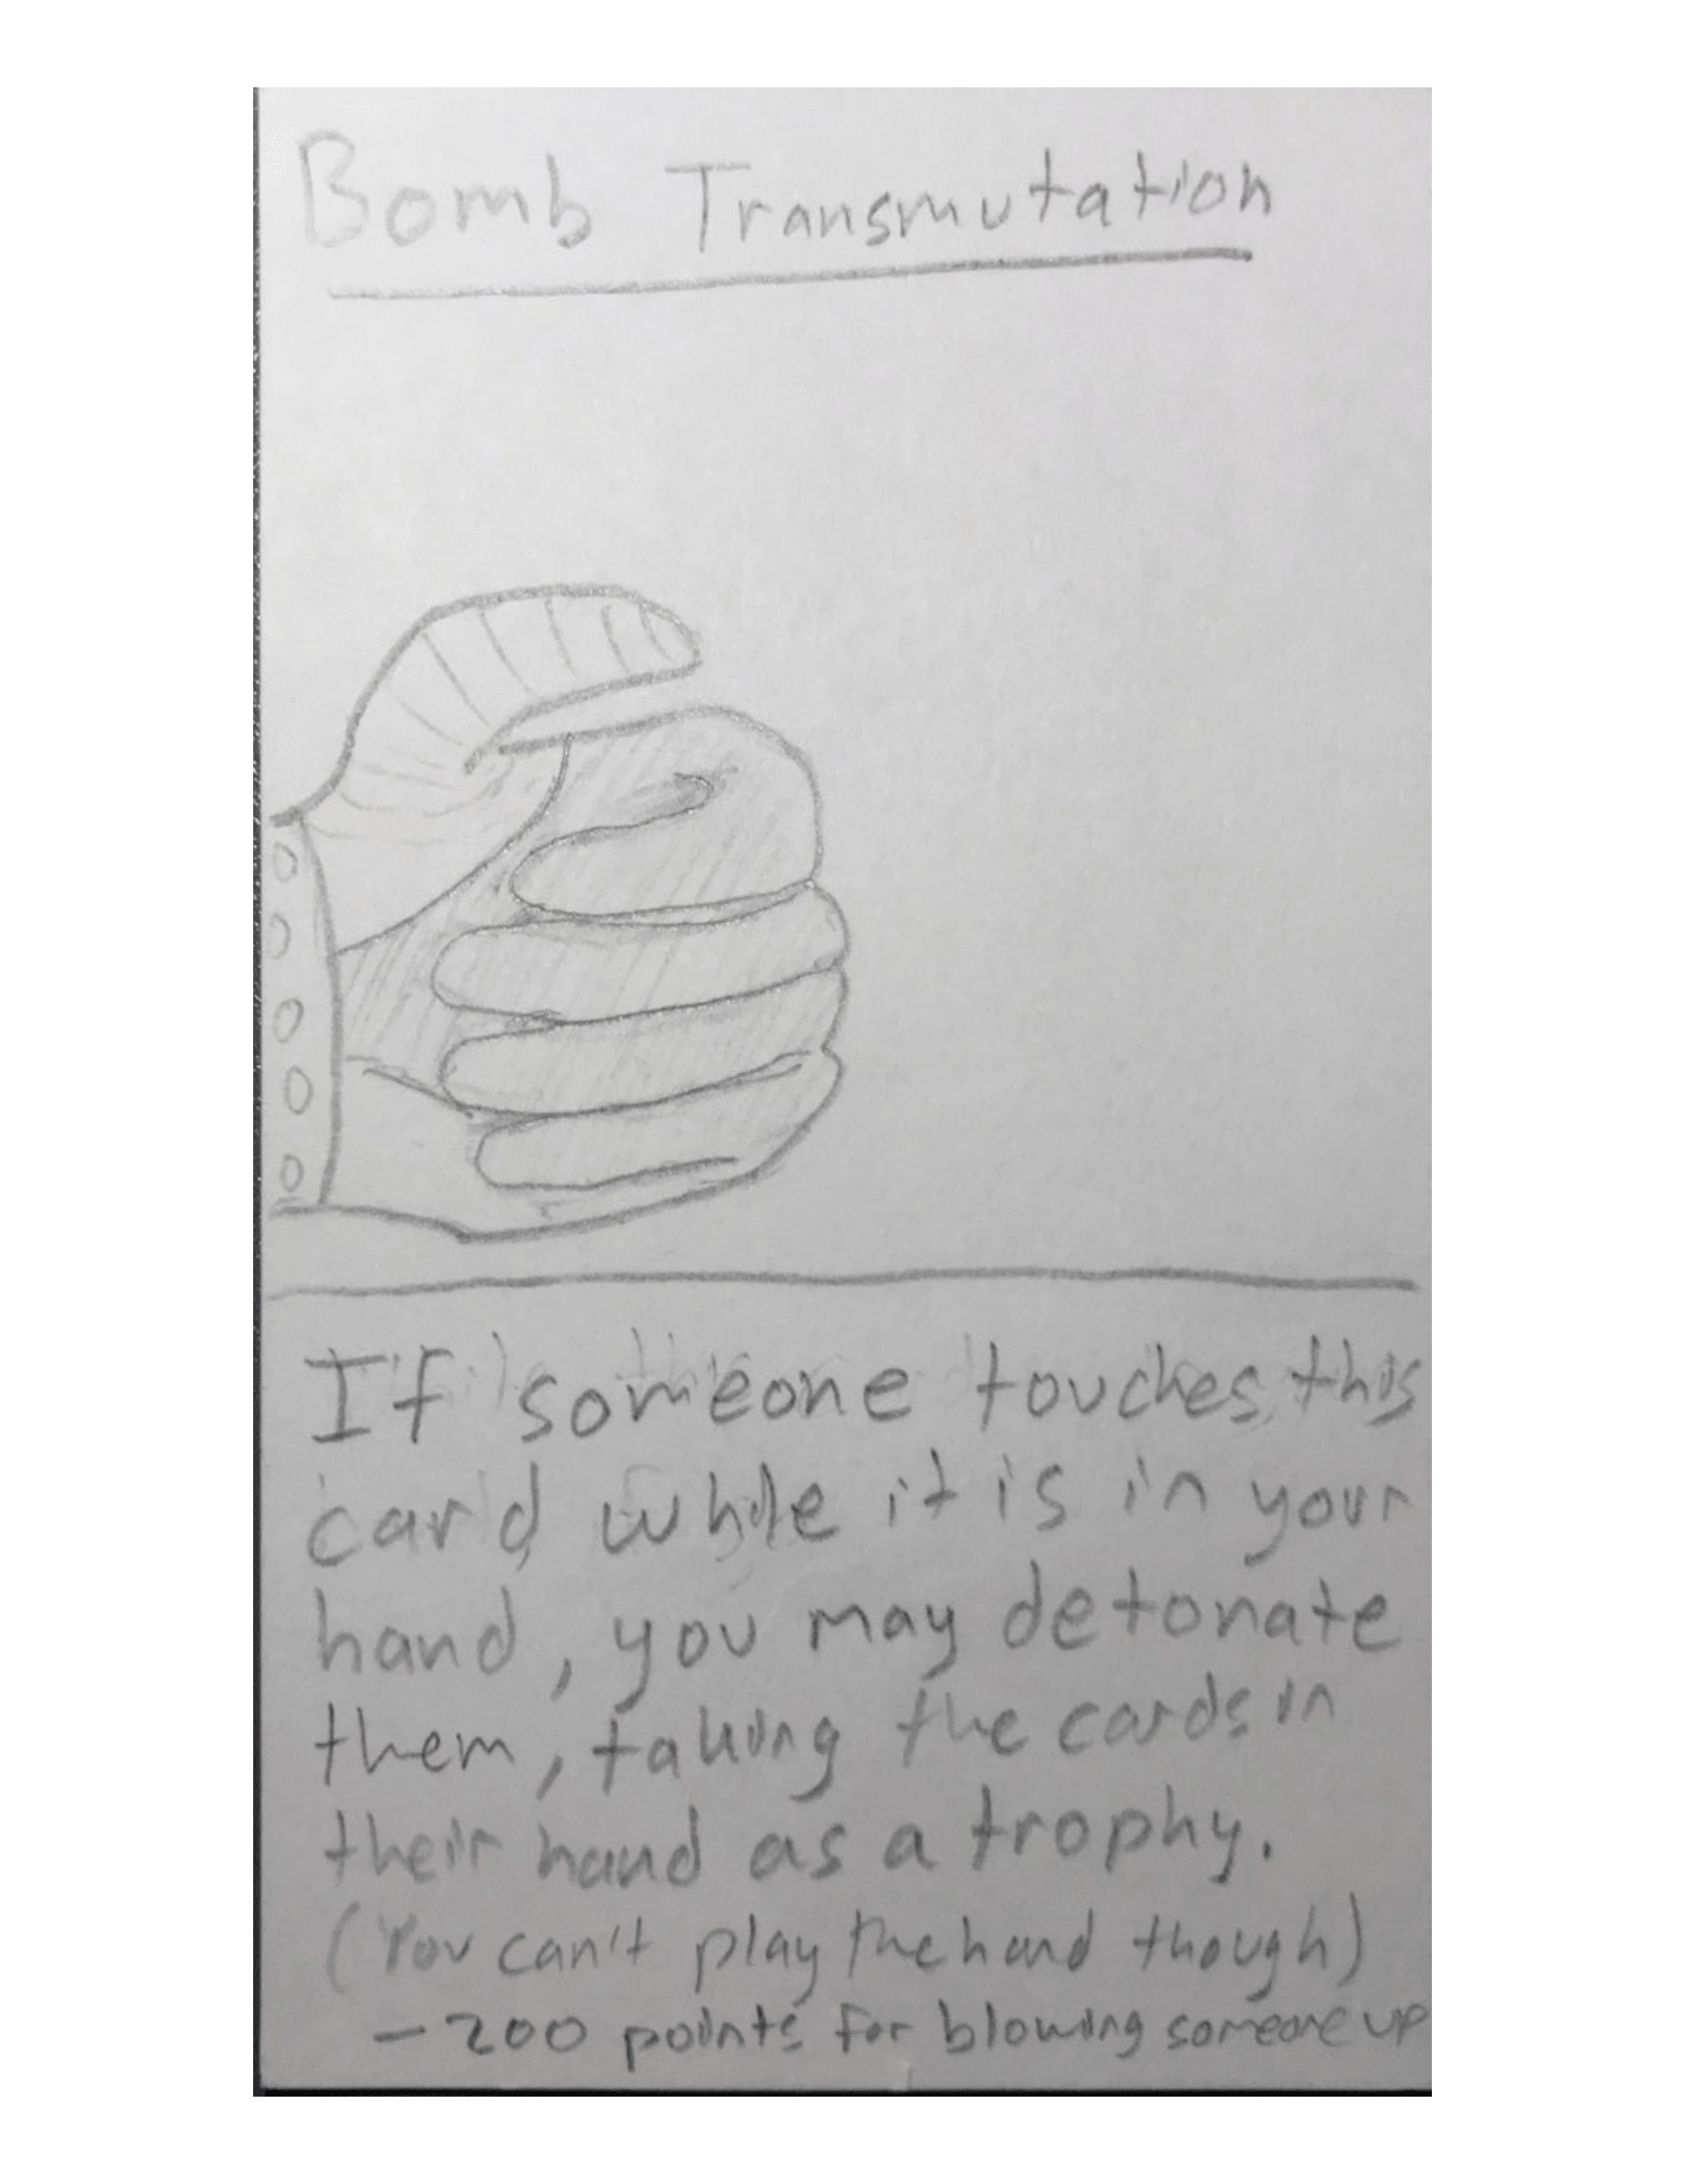 Bomb Transmutation
If someone touches this
card while it is in your
hand, you may detonate
them, taking the cards in
their hand as a trophy.
(You can't play the hand though)
- 200 points for blowing someone up